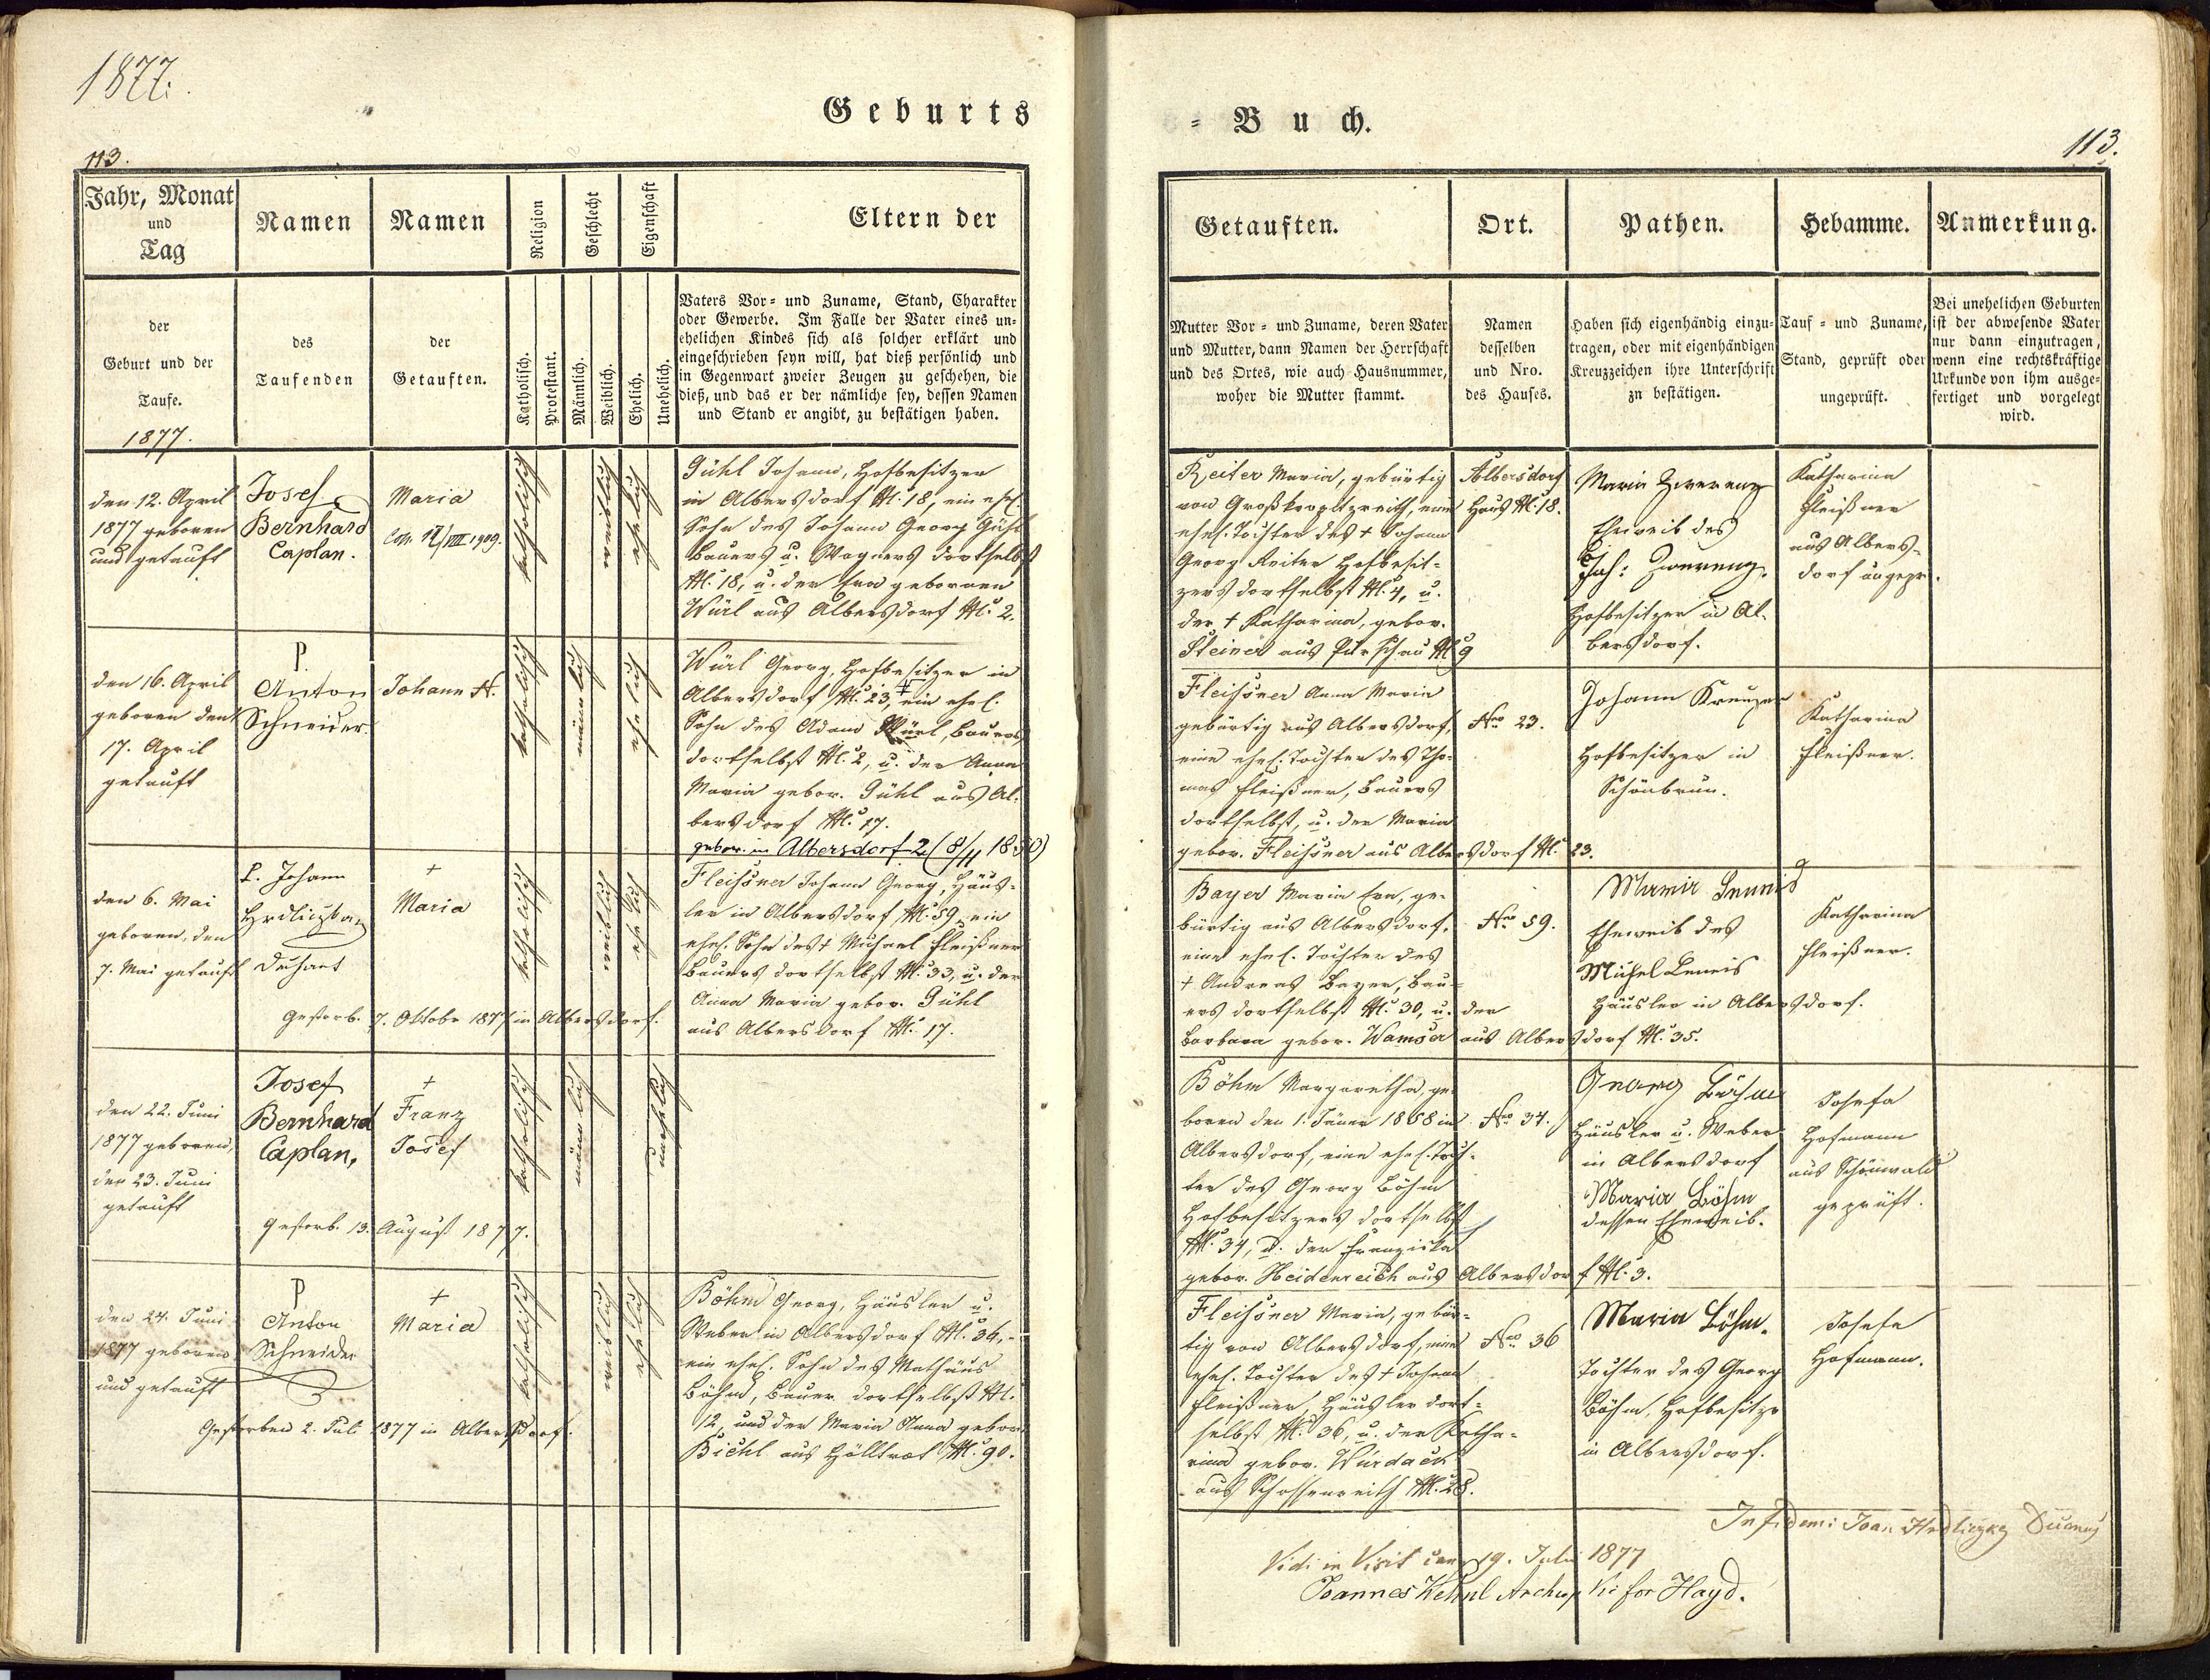 1877.
Geburts
= Buch.
113.
113.
Jahr, Monat
und
Tag
Namen
Namen
Religion
Geschlecht
Eigenschaft
Eltern der
Getauften.
Ort.
Pathen.
Hebamme.
Anmerkung.
der
Geburt und der
Taufe.
1877.
des
Taufenden
der
Getauften.
Katholisch.
Protestant.
Männlich.
Weiblich.
Ehelich.
Unehelich.
Vaters Vor= und Zuname, Stand, Charakter
oder Gewerbe. Im Falle der Vater eines un=
ehelichen Kindes sich als solcher erklärt und
eingeschrieben seyn will, hat dieß persönlich und
in Gegenwart zweier Zeugen zu geschehen, die
dieß, und das er der nämliche sey, dessen Namen
und Stand er angibt, zu bestätigen haben.
Mutter Vor = und Zuname, deren Vater
und Mutter, dann Namen der Herrschaft
und des Ortes, wie auch Hausnummer,
woher die Mutter stammt.
Namen
desselben
und Nro.
des Hauses.
Haben sich eigenhändig einzu=
tragen, oder mit eigenhändigen
Kreuzzeichen ihre Unterschrift
zu bestätigen.
Tauf = und Zuname,
Stand, geprüft oder
ungeprüft.
Bei unehelichen Geburten
ist der abwesende Vater
nur dann einzutragen,
wenn eine rechtskräftige
Urkunde von ihm ausge=
fertiget und vorgelegt
wird.
den 12. April
1877 geboren
und getauft
Josef
Bernhard
Caplan.
Maria
katholisch
weiblich
ehelich
Gühl Johann, Hofbesitzer
in Albersdorf N. 18, ein ehel.
Sohn des Johann Georg Gühl
Bauers u. Wagners dortselbst
N. 18, u. der Eva geborenen
Würl aus Albersdorf N. 2.
Reiter Maria, gebürtig
von Großkropitzreith, eine
ehel. Tochter des † Johann
Georg Reiter Hofbesit=
zers dortselbst N. 4, u.
der † Katharina, gebor.
Steiner aus Purschau N. 9
Albersdorf
Haus N. 18.
Maria Zwerenz
Eheweib des
Joh: Zwerenz,
Hofbesitzer in Al=
bersdorf.
Katharina
Fleißner
aus Albers=
dorf ungepr.
den 16. April
geboren den
17. April
getauft
P.
Anton
Schneider.
Johann N.
katholisch
männlich
ehelich
Würl Georg, Hofbesitzer in
Albersdorf N. 23, + ein ehel.
Sohn des Adam Würl, Bauers
dortselbst N. 2, u. der Anna
Maria gebor. Gühl aus Al=
bersdorf N. 17.
gebor. in Albersdorf 2 (8/11 1850)
Fleissner Anna Maria
gebürtig aus Albersdorf,
eine ehel. Tochter des Tho=
mas Fleißner, Bauers
dortselbst, u. der Maria
gebor. Fleissner aus Albersdorf N. 23.
Nro 23.
Johann Kreuzer
Hofbesitzer in
Schönbrun.
Katharina
Fleißner.
den 6. Mai
geboren, den
7. Mai getauft
P. Johann
Hrdliczka,
Dechant
†
Maria
katholisch
weiblich
ehelich
Gestorb. 7. Oktobr 1877 in Albersdorf.
Fleissner Johann Georg, Häus=
ler in Albersdorf N. 59, ein
ehel. Sohn des † Michael Fleißner
Bauers dortselbst N. 33, u. der
Anna Maria gebor. Gühl
aus Albersdorf N. 17.
Bayer Maria Eva, ge=
bürtig aus Albersdorf,
eine ehel. Tochter des
† Andreas Bayer, Bau=
ers dortselbst N. 30, u. der
Barbara gebor. Wamser aus Albersdorf N. 35.
Nro 59.
Eheweib des
Michel Leneis
Häusler in Albersdorf.
Katharina
Fleißner.
den 22. Juni
1877 geboren,
den 23. Juni
getauft
Josef
Bernhard
Caplan,
†
Franz
Josef
katholisch
männlich
unehelich
Gestorb. 13. August 1877.
Böhm Margaretha, ge=
boren den 1. Jäner 1858 in
Albersdorf, eine ehel. Toch=
ter des Georg Böhm
Hofbesitzers dortselbst
N. 34, u. der Franziska
gebor. Heidenreich aus Albersdorf N. 3.
Nro 34.
Georg Böhm
Häusler u. Weber
in Albersdorf
Maria Böhm
dessen Eheweib.
Josefa
Hofmann
aus Schönwald
geprüft.
den 24. Juni
1877 geboren
und getauft
P
Anton
Schneider
†
Maria
katholisch
weiblich
ehelich
Gestorben 2. Juli 1877 in Albersdorf.
Böhm Georg, Häusler u.
Weber in Albersdorf N. 36,
ein ehel. Sohn des Mathäus
Böhm, Bauer dortselbst N.
12, und der Maria Anna gebor.
Biehl aus N. 90.
Fleissner Maria, gebür=
tig von Albersdorf, eine
ehel. Tochter des † Johann
Fleißner, Häusler dort=
selbst N. 36, u. der Katha=
rina gebor. Würdack
aus Schossenreith N. 28.
Nro 36
Maria Böhm.
Tochter des Georg
Böhm, Hofbesitzer
in Albersdorf.
Josefa
Hofmann.
In fidem: Joan. Hrdliczka
Vidi in Visit 19. Juli 1877
Joannes for Hayd.